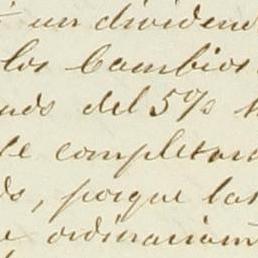 un dividend
los Cambios
del 5%
completar
, porque las
ordinariam